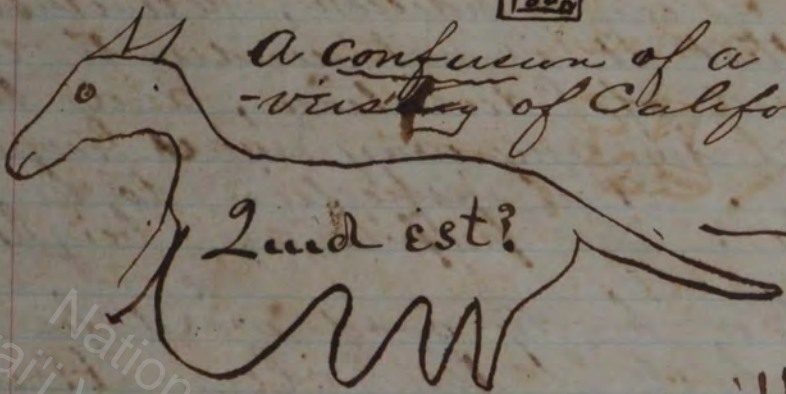 A confusion of a
-versity of Califo
Quid est?
Nation
ai'i V